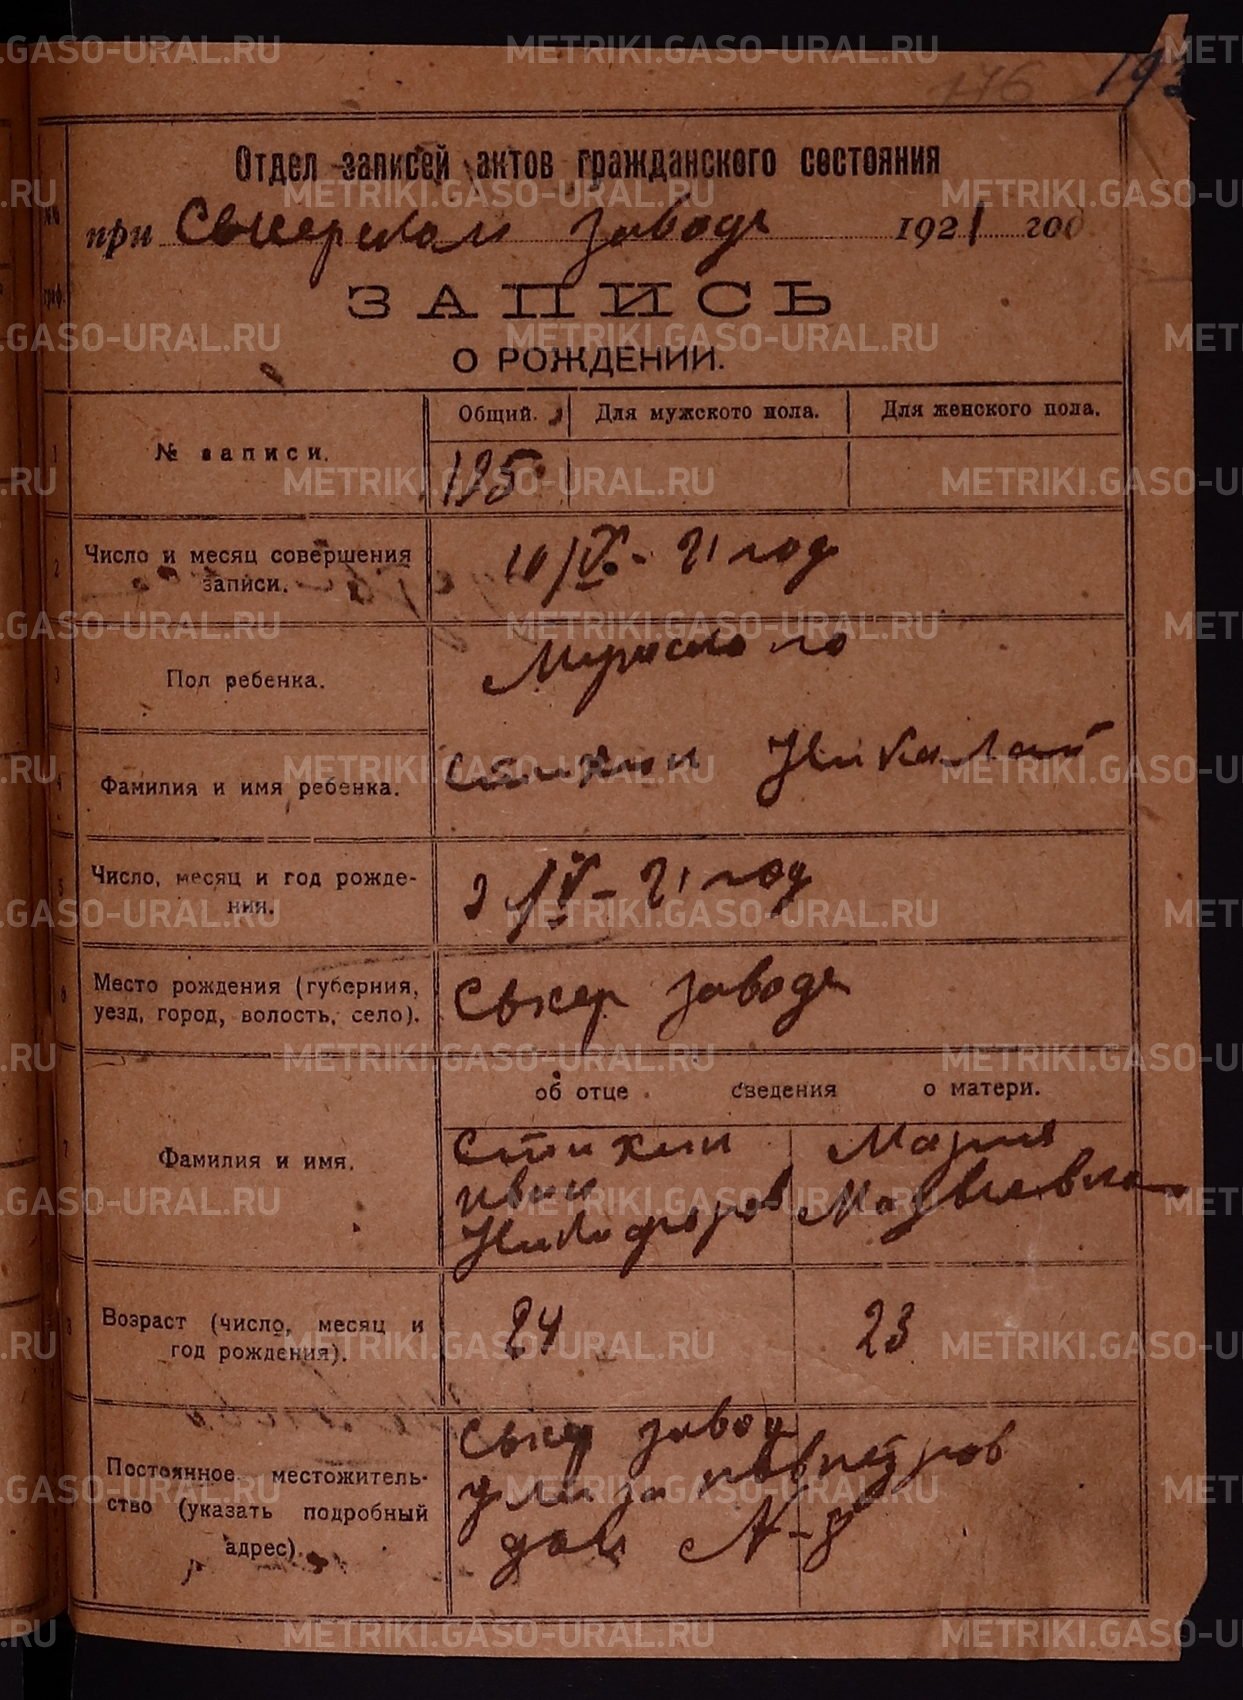 176 193
Отдел записей актов гражданского состояния
при Сысертском заводе 1921 год
ЗАПИСЬ
О РОЖДЕНИИ.
Общий. Для мужского пола. Для женского пола.
1 № записи. 125
2 Число и месяц совершения записи. 10/V - 21 год
3 Пол ребенка. Мужского
4 Фамилия и имя ребенка. Стихин Николай
5 Число, месяц и год рожде-
ния. 2/V - 21 год
6 Место рождения (губерния,
уезд, город, волость, село). Сысер заводе
об отце сведения о матери.
7 Фамилия и имя. Стихин Мария
Иван Матвеевна
Никифоров
8 Возраст (число, месяц и
год рождения). 24 23
Постоянное местожитель-
ство (указать подробный
адрес). Сысер завод
улица
дом N-3
METRIKI.GASO-URAL.RU